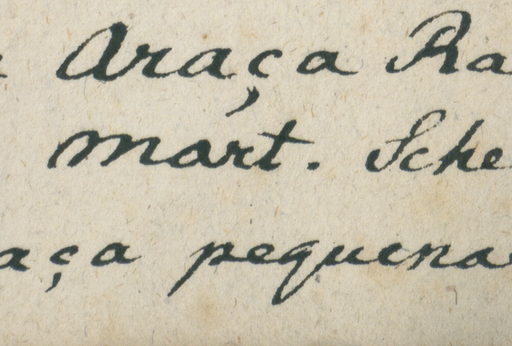 Araça Ra
mart. Sche
aça pequena